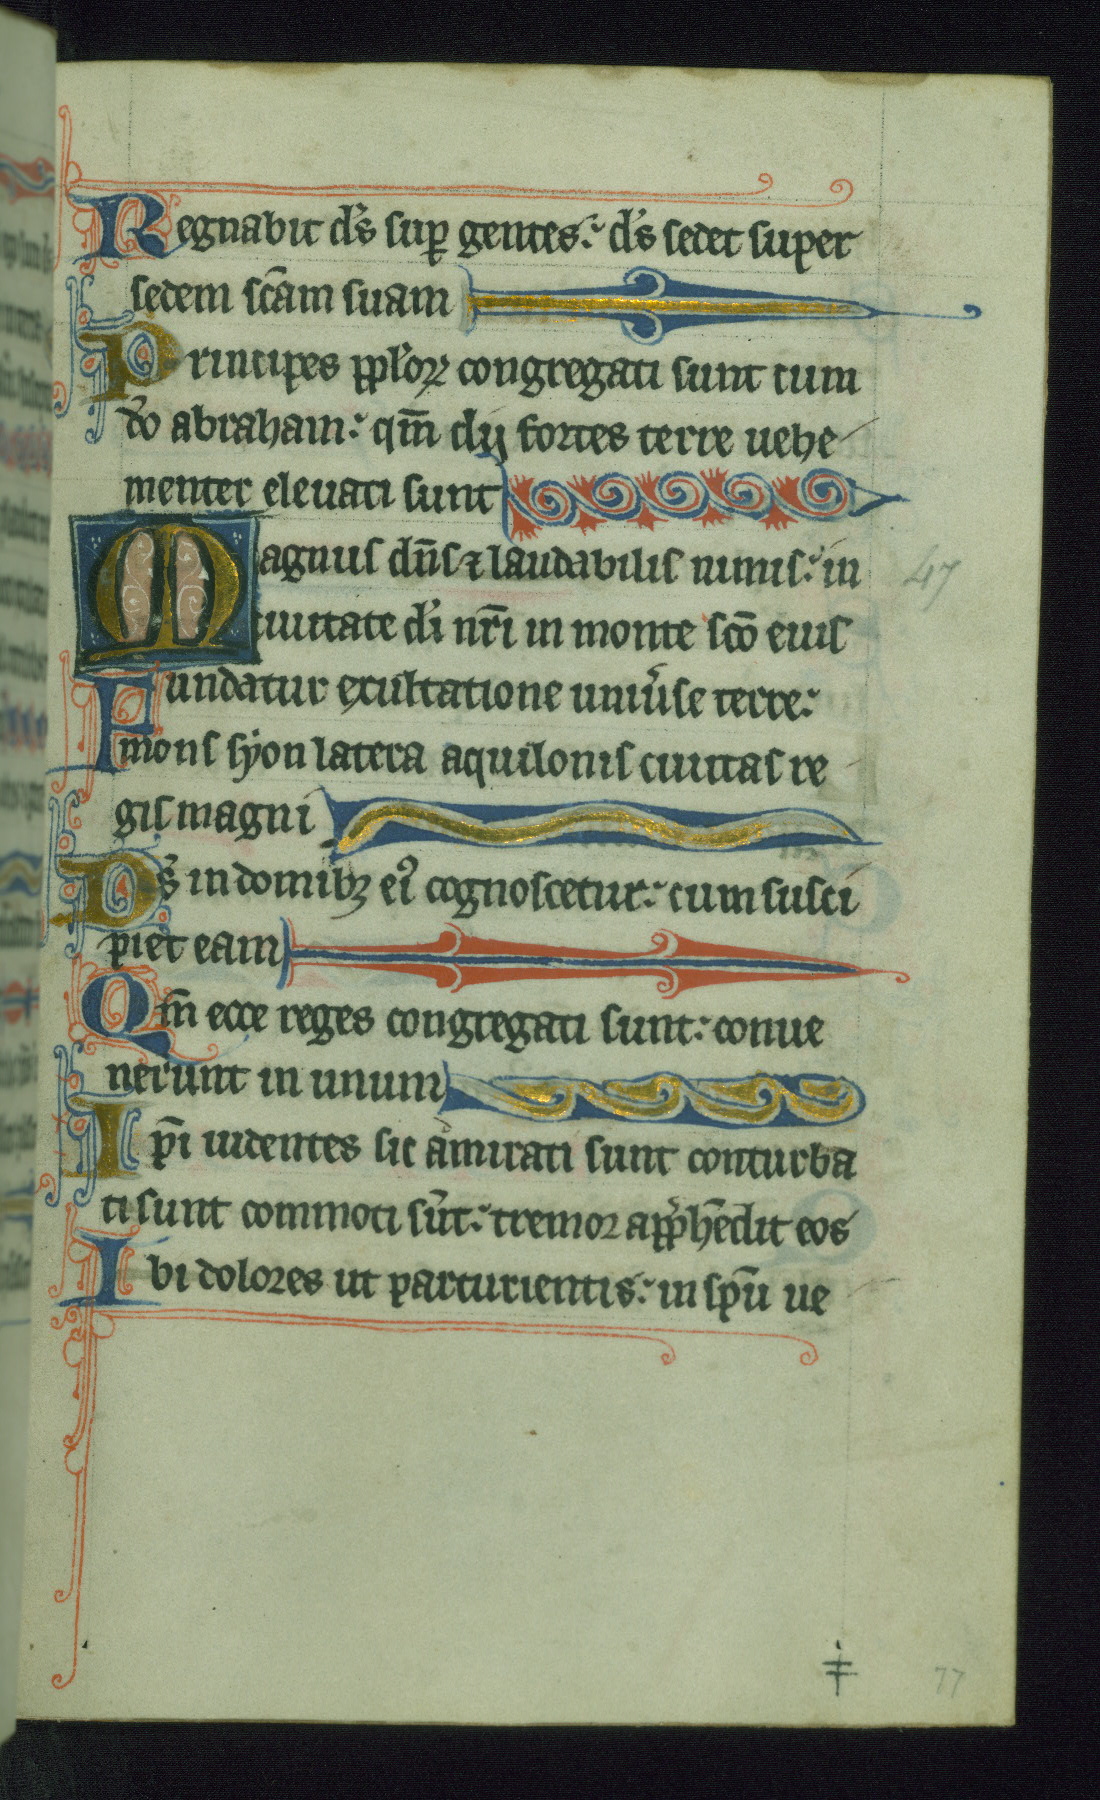 Regnabit d̄s sup̱ gentes: d̄s sedet super
sedem sc̄am suam
Principes pp̄loꝝ congregati sunt cum
d̄o abraham: qm̄ dij fortes terre uehe
menter eleuati sunt
Magnus dn̄s ⁊ laudabilis nimis: in 47
ciuitate d̄i nr̄i in monte sc̄o eius
Fundatur exultatione uniu̾se terre:
mons syon latera aquilonis ciuitas re
gis magni
Ds̄ in domibꝫ ei᾽ cognoscetur: cum susci
piet eam
Qm̄ ecce reges congregati sunt: conue
nerunt in unum
Ip̄i uidentes sic am̄irati sunt conturba
ti sunt commoti sūt: tremor app̾hēdit eos
Ibi dolores ut parturientis: in sp̄u ue
77